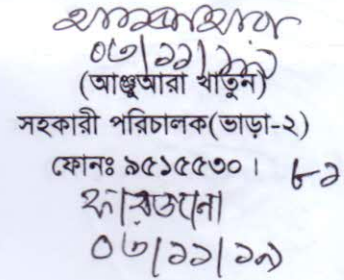 ০৬/১১/১৯
(আঞ্জুআরা খাতুন)
সহকারী পরিচালক(ভাড়া-২)
ফোনঃ ৯৫১৫৫৩০।
৮৯
ফারজানা
০৬/১১/১৯